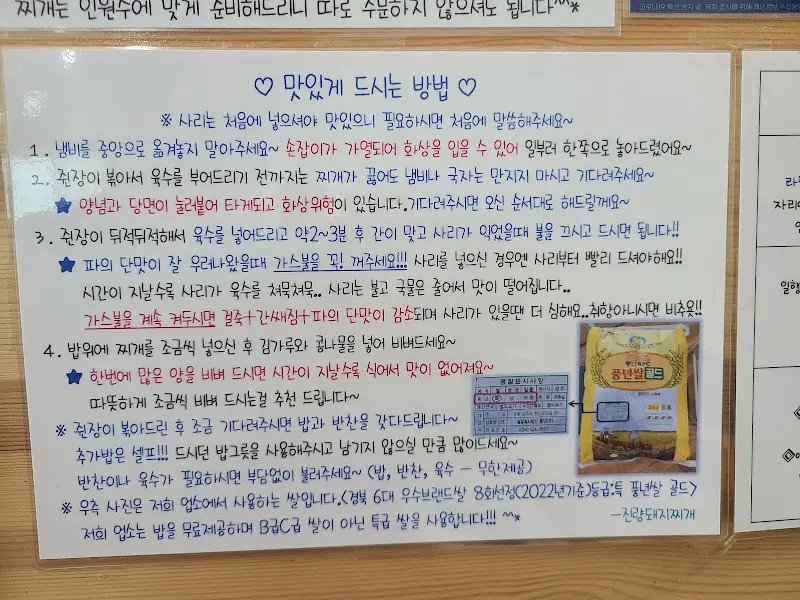 찌개는 인원수에 맞게 준비해드리니 따로 주문하지 않으셔도 됩니다^^*
♡ 맛있게 드시는 방법 ♡
※ 사리는 처음에 넣으셔야 맛있으니 필요하시면 처음에 말씀해주세요~
1. 냄비를 중앙으로 옮겨놓지 말아주세요~ 손잡이가 가열되어 화상을 입을 수 있어 일부러 한쪽으로 놓아드렸어요~
2. 쥔장이 볶아서 육수를 부어드리기 전까지는 찌개가 끓어도 냄비나 국자는 만지지 마시고 기다려주세요~
★ 양념과 당면이 눌러붙어 타게되고 화상위험이 있습니다.기다려주시면 오신 순서대로 해드릴께요~
3. 쥔장이 뒤적뒤적해서 육수를 넣어드리고 약2~3분 후 간이 맞고 사리가 익었을때 불을 끄시고 드시면 됩니다!!
★ 파의 단맛이 잘 우러나왔을때 가스불을 꼭! 꺼주세요!!! 사리를 넣으신 경우엔 사리부터 빨리 드셔야해요!!
시간이 지날수록 사리가 육수를 쳐묵쳐묵.. 사리는 불고 국물은 줄어서 맛이 떨어집니다..
가스불을 계속 켜두시면 걸죽+간쌔짐+파의 단맛이 감소되며 사리가 있을땐 더 심해요..취향아니시면 비추욧!!
4. 밥위에 찌개를 조금씩 넣으신 후 김가루와 콩나물을 넣어 비벼드세요~
★ 한번에 많은 양을 비벼 드시면 시간이 지날수록 식어서 맛이 없어져요~
따뜻하게 조금씩 비벼 드시는걸 추천 드립니다~
※ 쥔장이 볶아드린 후 조금 기다려주시면 밥과 반찬을 갖다드립니다~
추가밥은 셀프!!! 드시던 밥그릇을 사용해주시고 남기지 않으실 만큼 많이드세요~
반찬이나 육수가 필요하시면 부담없이 불러주세요~ (밥, 반찬, 육수 - 무한제공)
※ 우측 사진은 저희 업소에서 사용하는 쌀입니다.<경북 6대 우수브랜드쌀 8회선정(2022년기준)등급:특 풍년쌀 골드>
저희 업소는 밥을 무료제공하며 B급C급 쌀이 아닌 특급 쌀을 사용합니다!!! ^^*
-진량돼지찌개
품질표시사항
풍년쌀골드